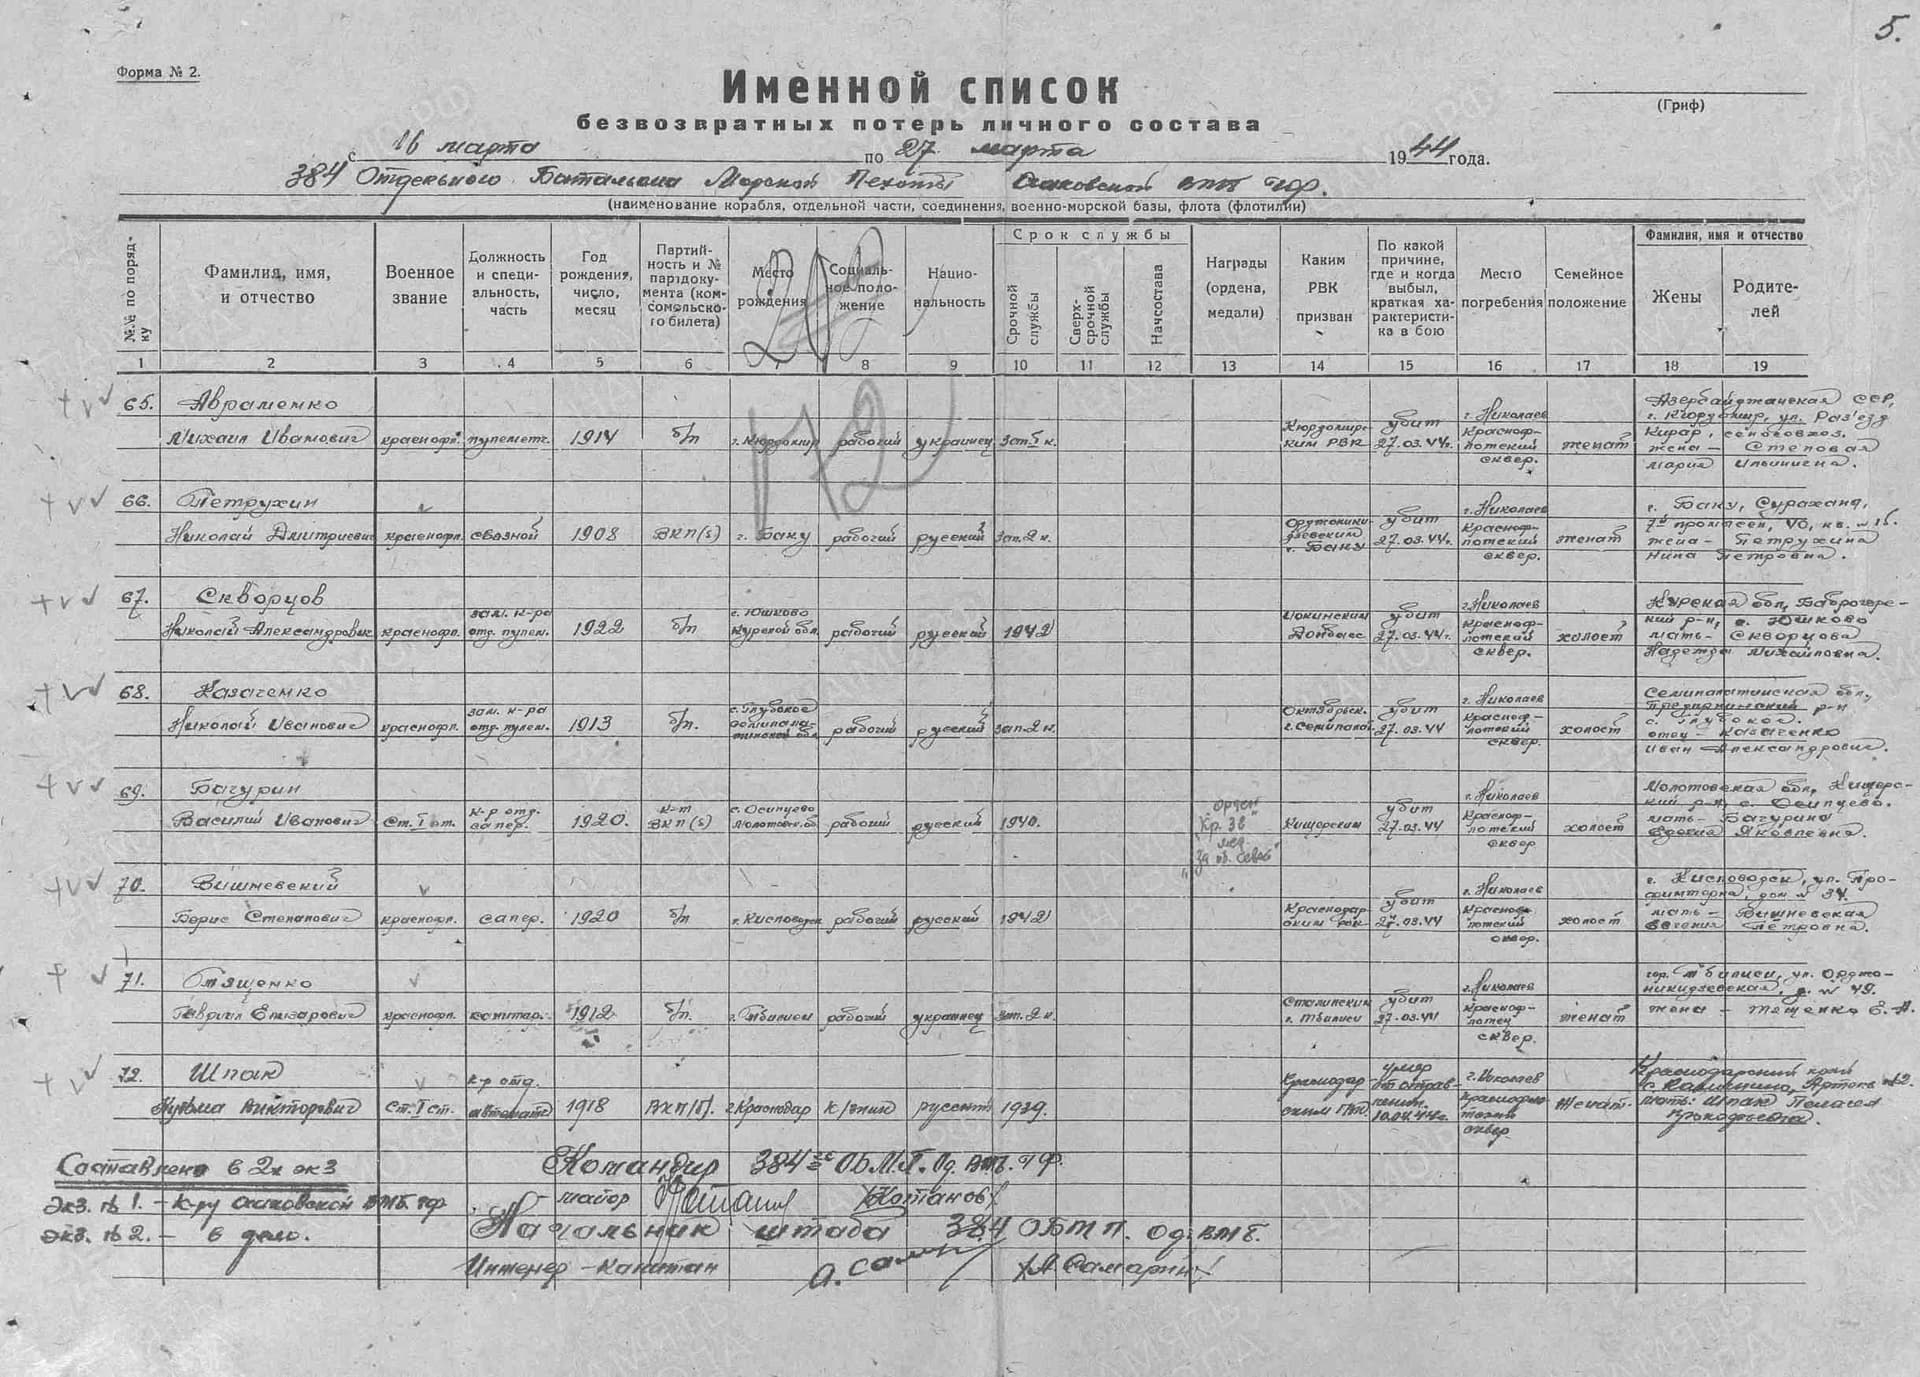 5.
Форма № 2.
Именной список
(Гриф)
безвозвратных потерь личного состава
с 16 марта по 27 марта 1944 года.
384 Отдельного Батальона Морской Пехоты Одесской ВМБ ЧФ.
(наименование корабля, отдельной части, соединения, военно-морской базы, флота (флотилии)
№№ по порядку
Фамилия, имя, и отчество
Военное звание
Должность и специальность, часть
Год рождения, число, месяц
Партийность и № партдокумента (комсомольского билета)
Место рождения
Социальное положение
Национальность
Срок службы
Срочной службы
Сверхсрочной службы
Начсостава
Награды (ордена, медали)
Каким РВК призван
По какой причине, где и когда выбыл, краткая характеристика в бою
Место погребения
Семейное положение
Фамилия, имя и отчество
Жены
Родителей
1 2 3 4 5 6 7 8 9 10 11 12 13 14 15 16 17 18 19
65. Авраменко Михаил Иванович
краснофл. пулеметч. 1914 б/п г. Кюрдомир рабочий украинец зап. I к.
Кюрдомирским РВК
убит 27.03.44г.
г. Николаев Краснофлотский сквер.
женат
Азербайджанская ССР,
г. Кюрдомир, ул. Раз'езд
Кирар, семсовхоз.
жена – Степовая
Мария Ильинична.
66. Петрухин Николай Дмитриевич
краснофл. связной 1908 ВКП(б) г. Баку рабочий русский зап. 2 к.
г. Баку
убит 27.03.44г.
г. Николаев Краснофлотский сквер.
женат
г. Баку, Сурахана,
жена – Петрухина
Нина Петровна.
67. Скворцов Николай Александрович
краснофл. зам. к-ра отд. пулем. 1922 б/п с. Юшково Курской обл. рабочий русский 1942
Донбасс
убит 27.03.44г.
г. Николаев Краснофлотский сквер.
холост
Курская обл,
р-н, с. Юшково
мать – Скворцова
Надежда Михайловна.
68. Казаченко Николай Иванович
краснофл. зам. к-ра отд. пулем. 1913 б/п. с. Глубокое рабочий русский зап. 2 к.
Октябрьск. г. Семипалат.
убит 27.03.44
г. Николаев Краснофлотский сквер.
холост
Семипалатинская обл.,
р-н
с. Глубокое.
отец – Казаченко
Иван Александрович.
69. Бачурин Василий Иванович
Ст. I ст. к-р отд. сапер. 1920. к-т ВКП(б) с. Осинцево Молотовс. об. рабочий русский 1940.
орден "Кр. Зв" мед. "За об. Севас"
Кишерским
убит 27.03.44
г. Николаев Краснофлотский сквер
холост
Молотовская обл, Кишерский р-н, с. Осинцево.
мать – Бачурина
Евдокия Яковлевна.
70. Вишневский Борис Степанович
краснофл. сапер. 1920 б/п г. Кисловодск рабочий русский 1942
Краснодарским РВК
убит 27.03.44
г. Николаев Краснофлотский сквер.
холост
г. Кисловодск, ул. Профинтерна, дом № 34.
мать – Вишневская
Евгения Петровна.
71. Тященко Гавриил Елизарович
краснофл. санитар. 1912 б/п. г. Тбилиси рабочий украинец зап. 2 к.
Сталинским г. Тбилиси
убит 27.03.44
г. Николаев сквер.
женат
гор. Тбилиси, ул. Орджоникидзевская, д. № 49.
жена – Тященко Е. А.
72. Шпак Кузьма Викторович
Ст. I ст. к-р отд. автомат. 1918 ВКП(б). г. Краснодар русский 1939.
Краснодарским
умер 10.04.44г.
г. Николаев сквер
Женат.
Краснодарский край
с Калинино,
мать: Шпак Пелагея
Составлено в 2х экз
Экз. № 1. – К-ру Одесской ВМБ ЧФ
Экз. № 2. – в дело.
Командир 384го ОБМП. Од. ВМБ. ЧФ.
майор /Котанов/
Начальник штаба 384 ОБМП. Од. ВМБ.
Инженер – капитан /А. Самарин/